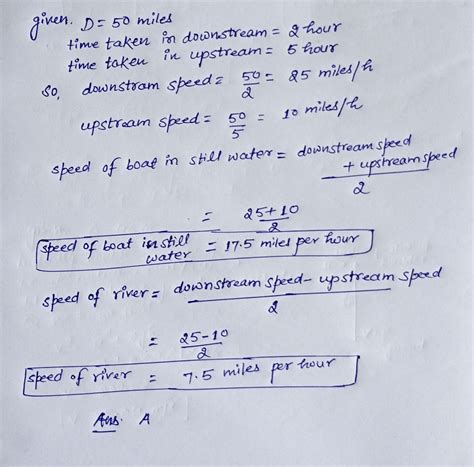 given. D = 50 miles
time taken in downstream = 2 hour
time taken in upstream = 5 hour
So, downstram speed = 50/2 = 25 miles/h
upstream speed = 50/5 = 10 miles/h
speed of boat in still water = downstream speed + upstream speed / 2
= 25+10 / 2
speed of boat in still water = 17.5 miles per hour
speed of river = downstream speed - upstream speed / 2
= 25-10 / 2
speed of river = 7.5 miles per hour
Ans. A